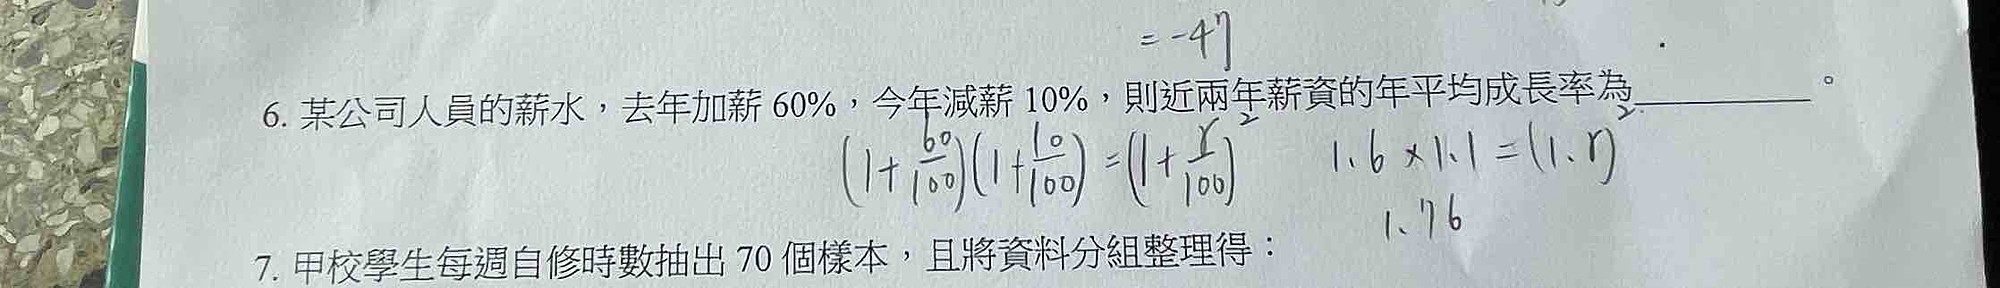 = -47
6. 某公司人員的薪水，去年加薪 60%，今年減薪 10%，則近兩年薪資的年平均成長率為＿＿＿＿＿。
(1+60/100)(1+10/100)=(1+r/100)² 1.6×1.1=(1.r)²
1.76
7. 甲校學生每週自修時數抽出 70 個樣本，且將資料分組整理得：